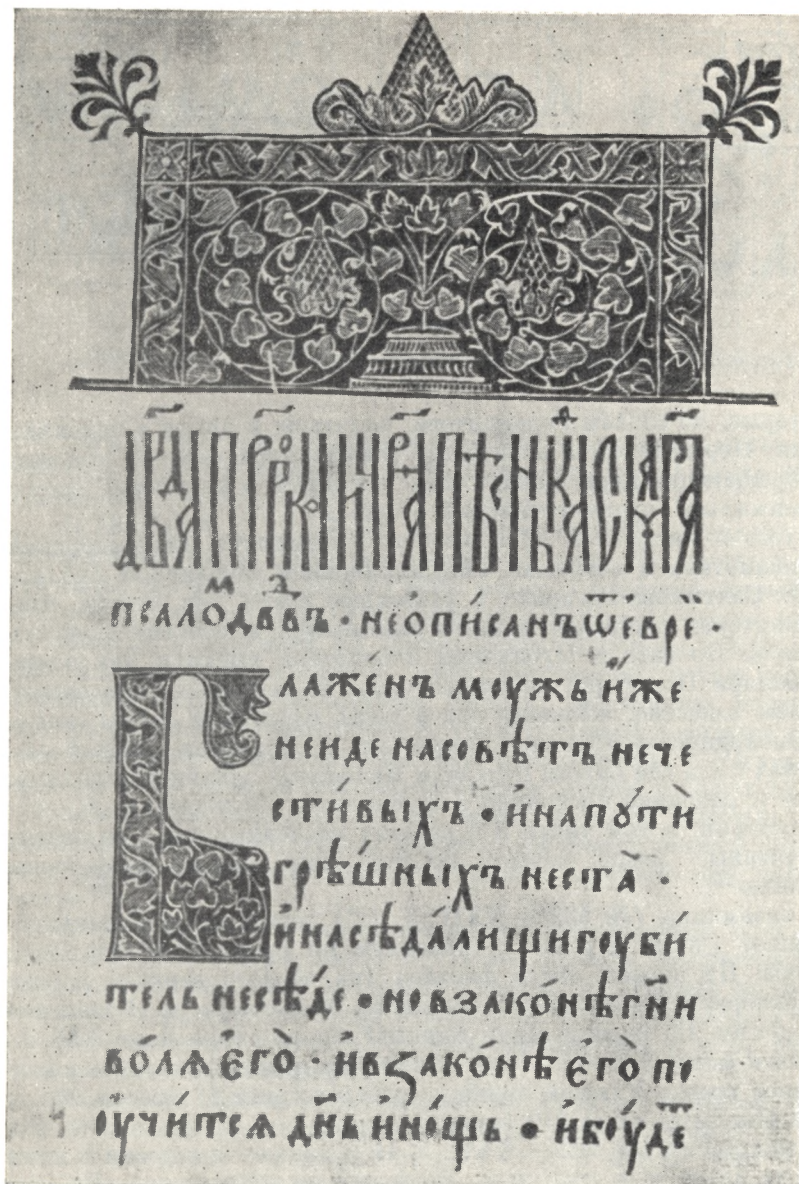 Дв҃да прⷪ҇рка и цр҃ѧ
псалоⷨ двⷣвъ · не ѡ҆пи́санъ ѿ евре́ ·
Блаже́нъ моужь и́же
не иде на совѣтъ нече
сти́выхъ · и на пꙋти̇̀
грѣ́шныхъ не ста̀ ·
и́ на сѣда́лищи гоуби́
тель не сѣ́де · но в законѣ гн҃и
во́лѧ его̀ · и в ꙁако́нѣ его̀ по
оучи́тсѧ дн҃ь и но́щь · и боу́де